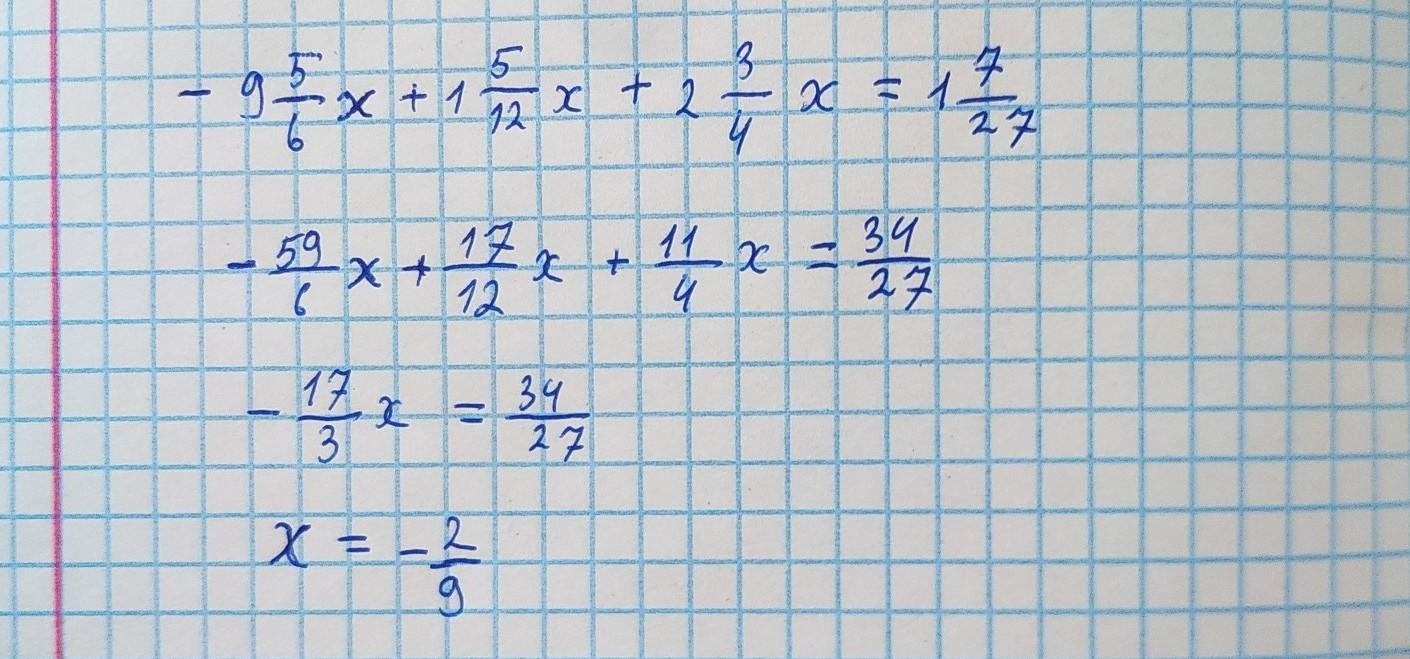 - 9 5/6 x + 1 5/12 x + 2 3/4 x = 1 7/27
- 59/6 x + 17/12 x + 11/4 x = 34/27
- 17/3 x = 34/27
x = - 2/9